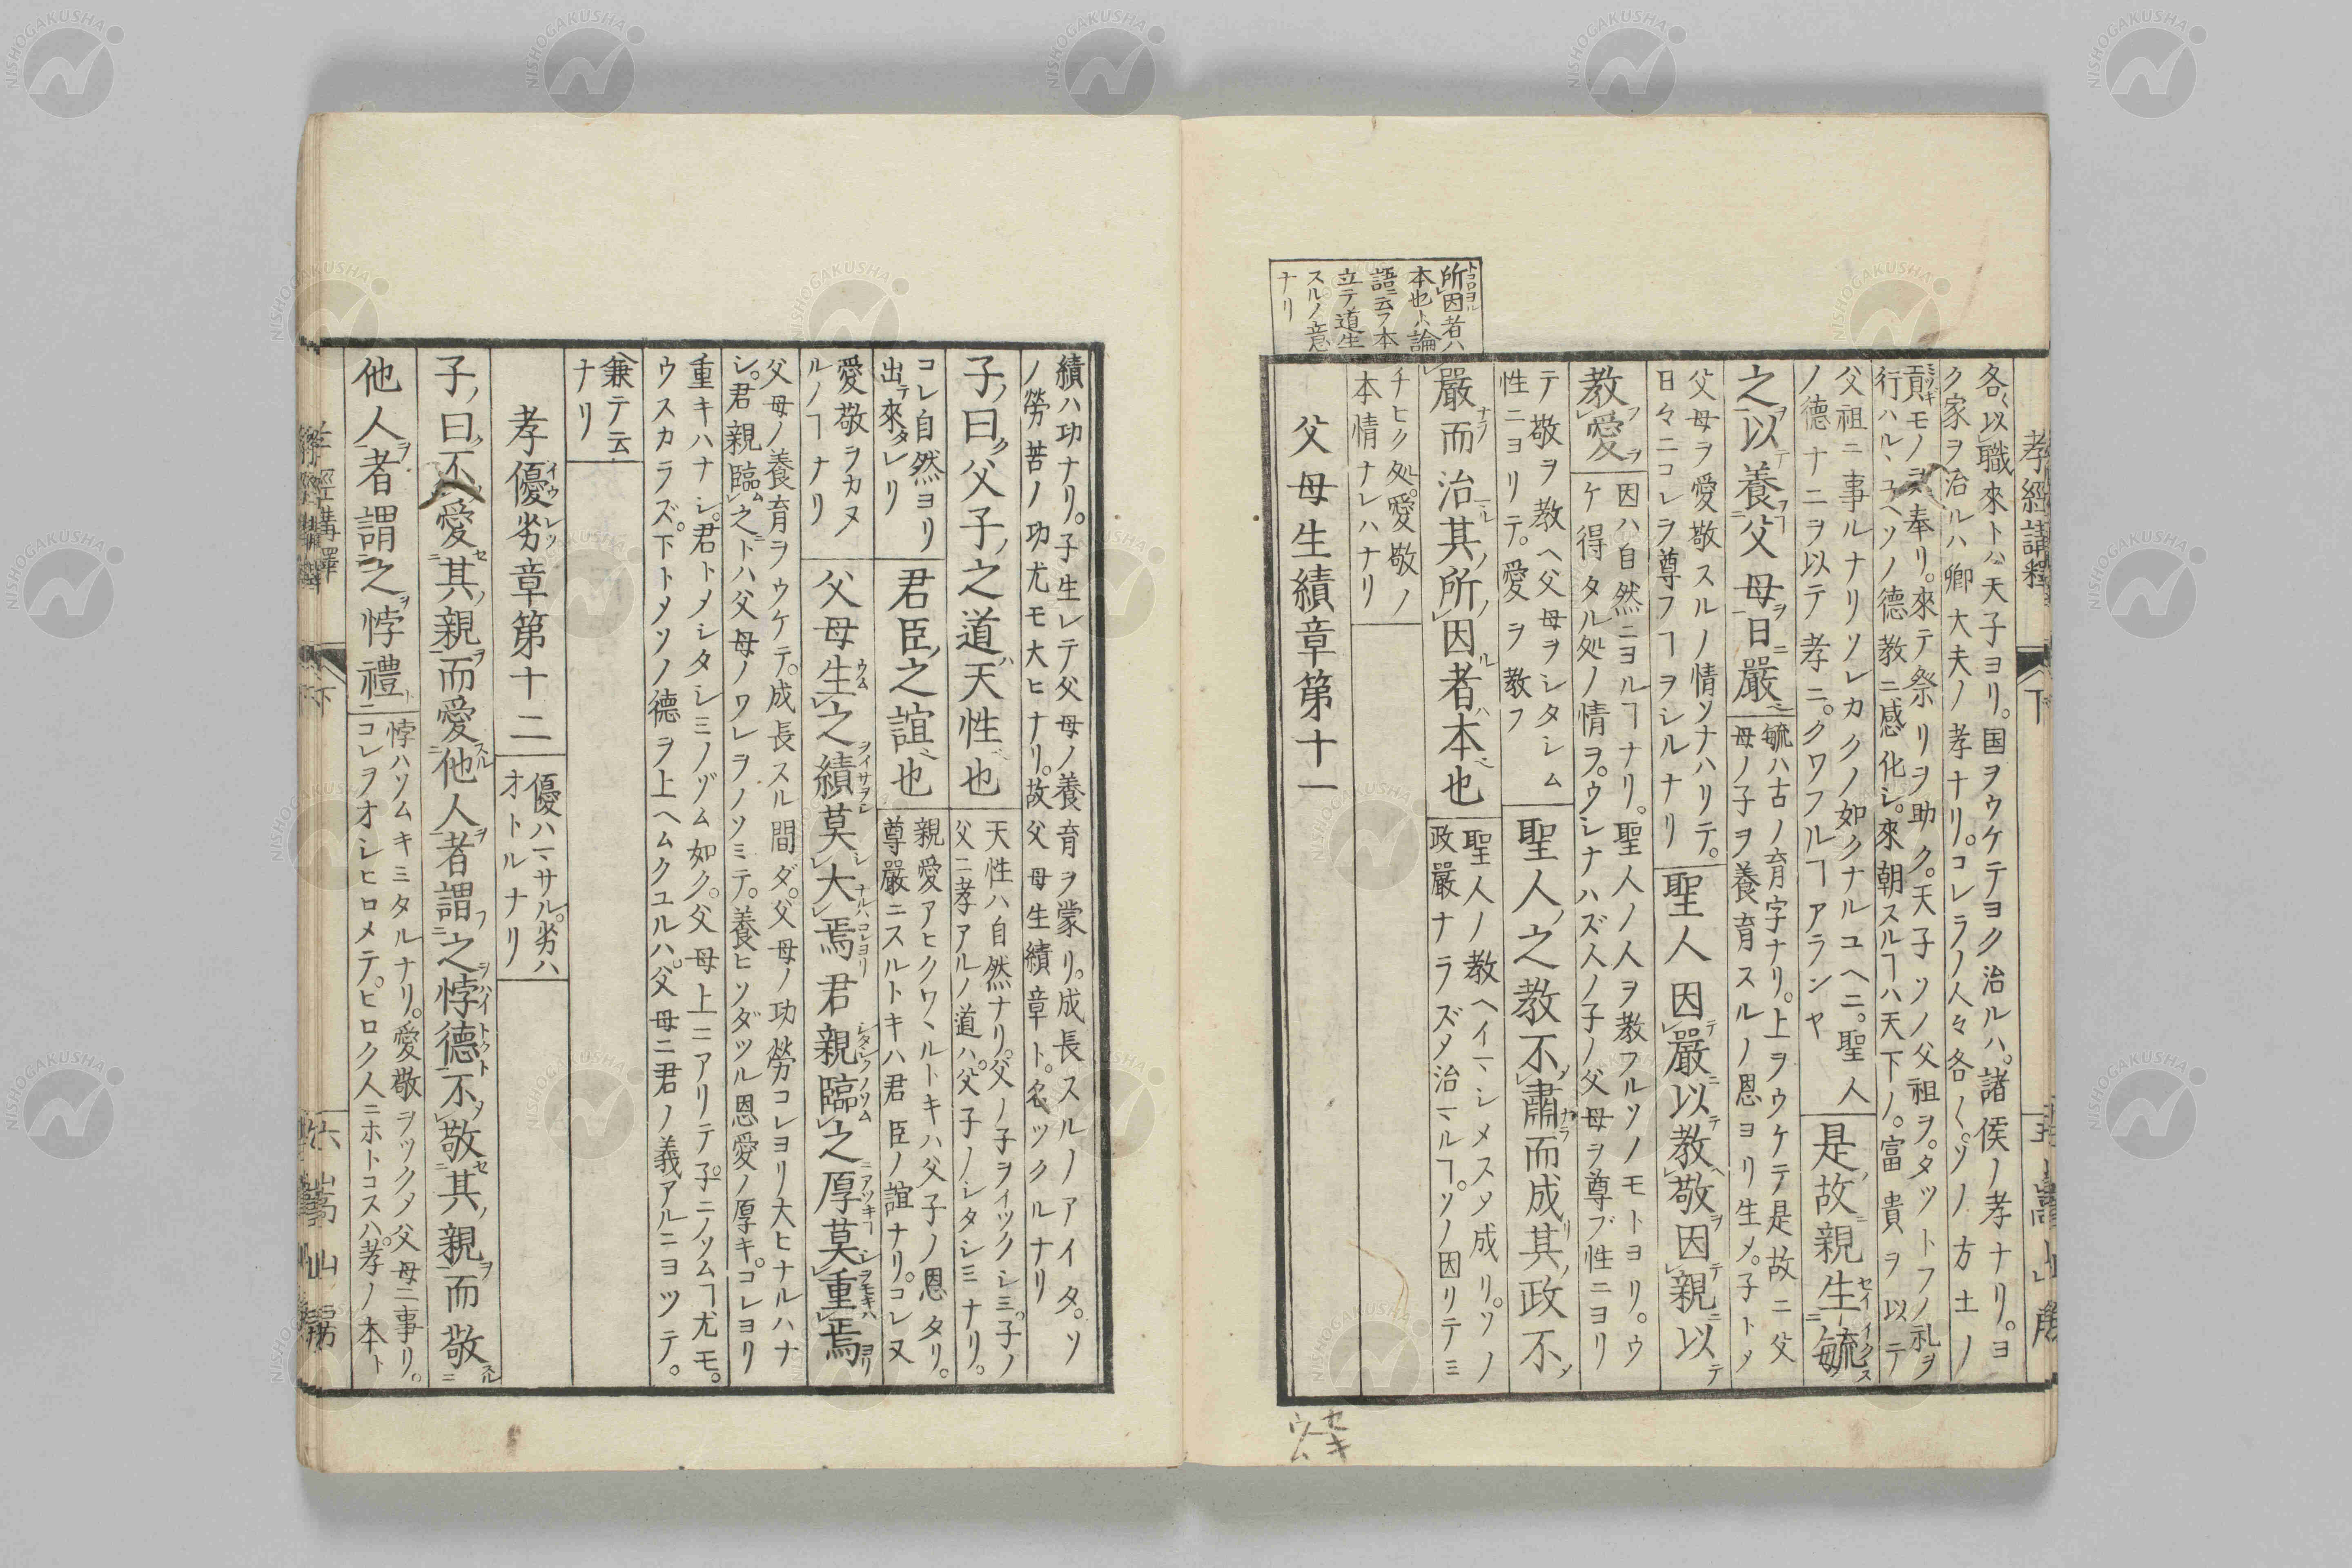 孝經講釋
下
各〱以職來トハ天子ヨリ。国ヲウケテヨク治ルハ。諸侯ノ孝ナリ。ヨ
ク家ヲ治ルハ卿大夫ノ孝ナリ。コレラノ人々各〱。ソノ方土ノ
貢モノヲ奉リ。來テ祭リヲ助ク。天子ソノ父祖ヲ。タツトフノ礼ヲ
行ハル、ユヘソノ德教ニ感化シ。來朝スルヿハ天下ノ。富貴ヲ以テ
父祖ニ事ルナリソレカクノ如クナルユヘニ。聖人
ノ德ナニヲ以テ孝ニ。クワフルヿアランヤ
是故親生毓
之以養父母日嚴
毓ハ古ノ育字ナリ。上ヲウケテ是故ニ父
母ノ子ヲ養育スルノ恩ヨリ生メ。子トメ
父母ヲ愛敬スルノ情ソナハリテ。
日々ニコレヲ尊フヿヲシルナリ
聖人因嚴以教敬因親以
教愛
因ハ自然ニヨルヿナリ。聖人ノ人ヲ教フルソノモトヨリ。ウ
ケ得タル処ノ情ヲ。ウシナハズ人ノ子ノ父母ヲ尊ブ性ニヨリ
テ敬ヲ教ヘ父母ヲシタシム
性ニヨリテ。愛ヲ教フ
聖人之教不肅而成其政不
嚴而治其所因者本也
聖人ノ教ヘイマシメスメ成リ。ソノ
政嚴ナラズメ治マルヿ。ソノ因リテミ
チヒク処。愛敬ノ
本情ナレハナリ
父母生績章第十一
所因者ハ
本也ト論
語ニ云フ本
立テ道生
スルノ意
ナリ
セキ
ウム
績ハ功ナリ。子生レテ父母ノ養育ヲ蒙リ。成長スルノアイタ。ソ
ノ勞苦ノ功尤モ大ヒナリ。故父母生績章ト。名ツクルナリ
子曰父子之道天性也
天性ハ自然ナリ。父ノ子ヲイツクシミ。子ノ
父ニ孝アルノ道ハ。父子ノシタシミナリ。
コレ自然ヨリ
出テ來タレリ
君臣之誼也
親愛アヒクワ、ルトキハ父子ノ恩タリ。
尊嚴ニスルトキハ君臣ノ誼ナリ。コレ又
愛敬ヲカヌ
ルノヿナリ
父母生之績莫大焉君親臨之厚莫重焉
父母ノ養育ヲウケテ。成長スル間ダ。父母ノ功勞コレヨリ大ヒナルハナ
シ。君親臨之トハ父母ノワレヲノソミテ。養ヒソダツル恩愛ノ厚キ。コレヨリ
重キハナシ。君トメシタシミノゾム如ク。父母上ニアリテ。子ニノソムヿ尤モ。
ウスカラズ。下トメソノ德ヲ上ヘムクユルハ。父母ニ君ノ義アルニヨツテ。
兼テ云
ナリ
孝優劣章第十二
優ハマサル。劣ハ
オトルナリ
子曰不愛其親而愛他人者謂之悖德不敬其親而敬
他人者謂之悖禮
悖ハソムキミタルナリ。愛敬ヲツクメ父母ニ事リ。
コレヲオシヒロメテ。ヒロク人ニホトコスハ。孝ノ本ト